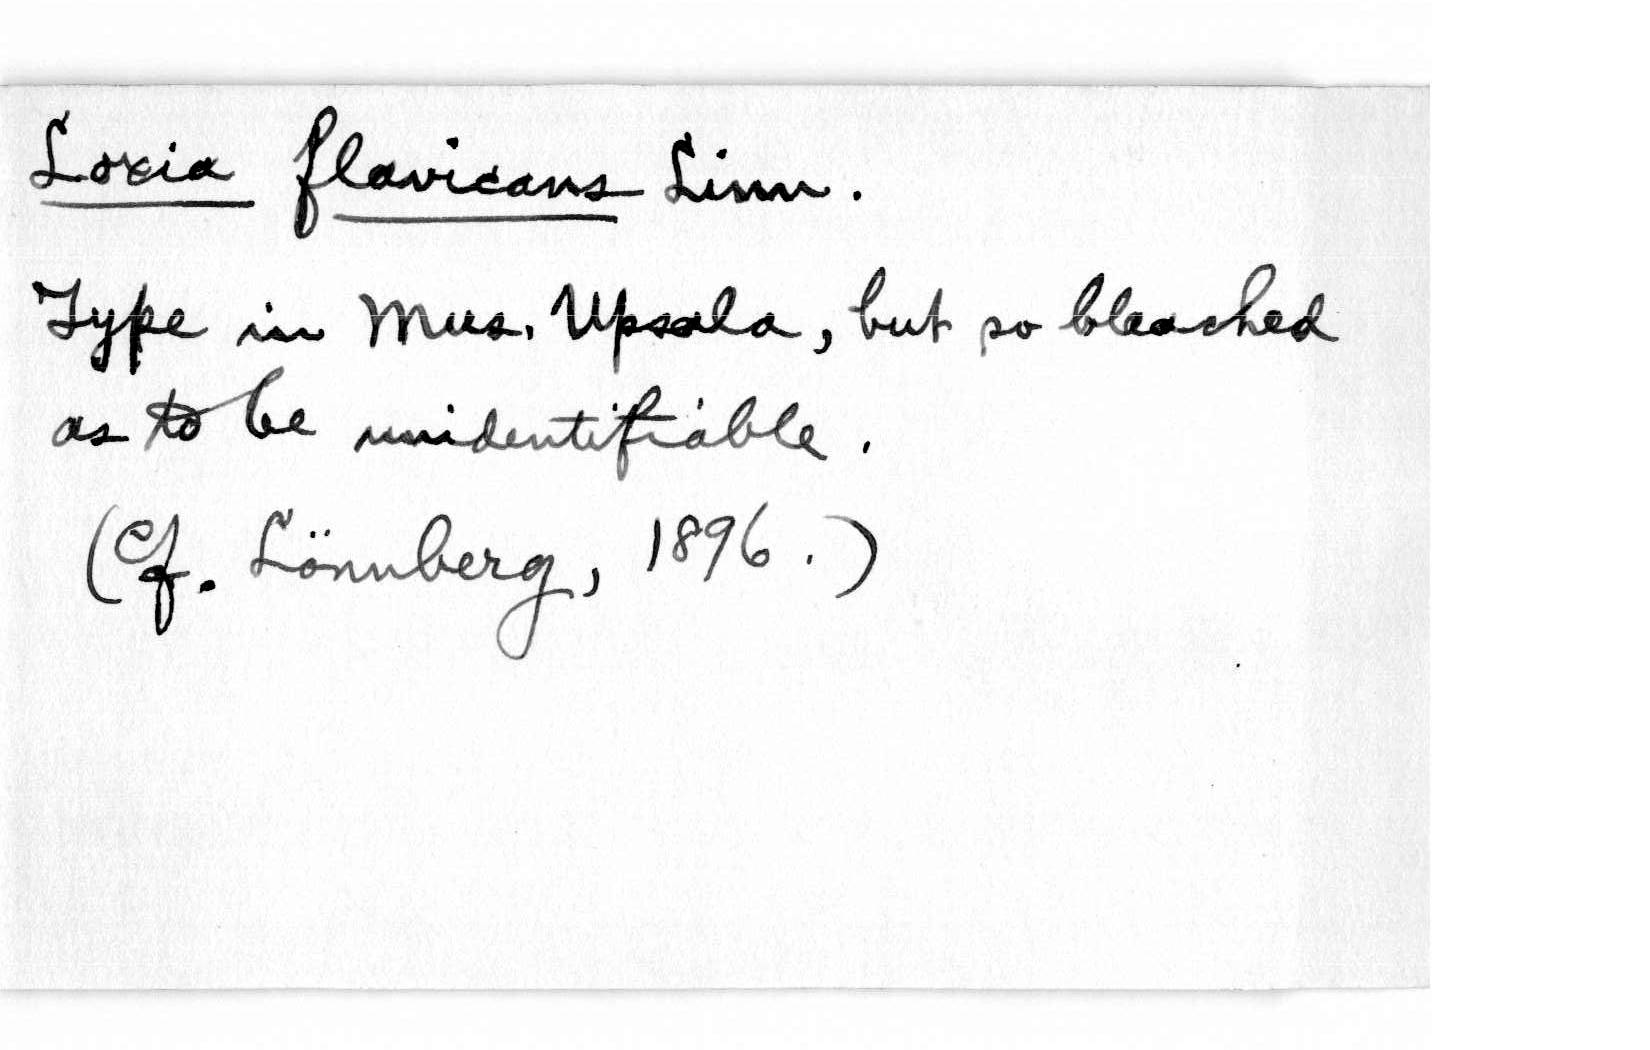 Loxia flavicans Linn.
Type in Mus. Upsala, but so bleached
as to be unidentifiable.
(Cf. Lönnberg, 1896.)